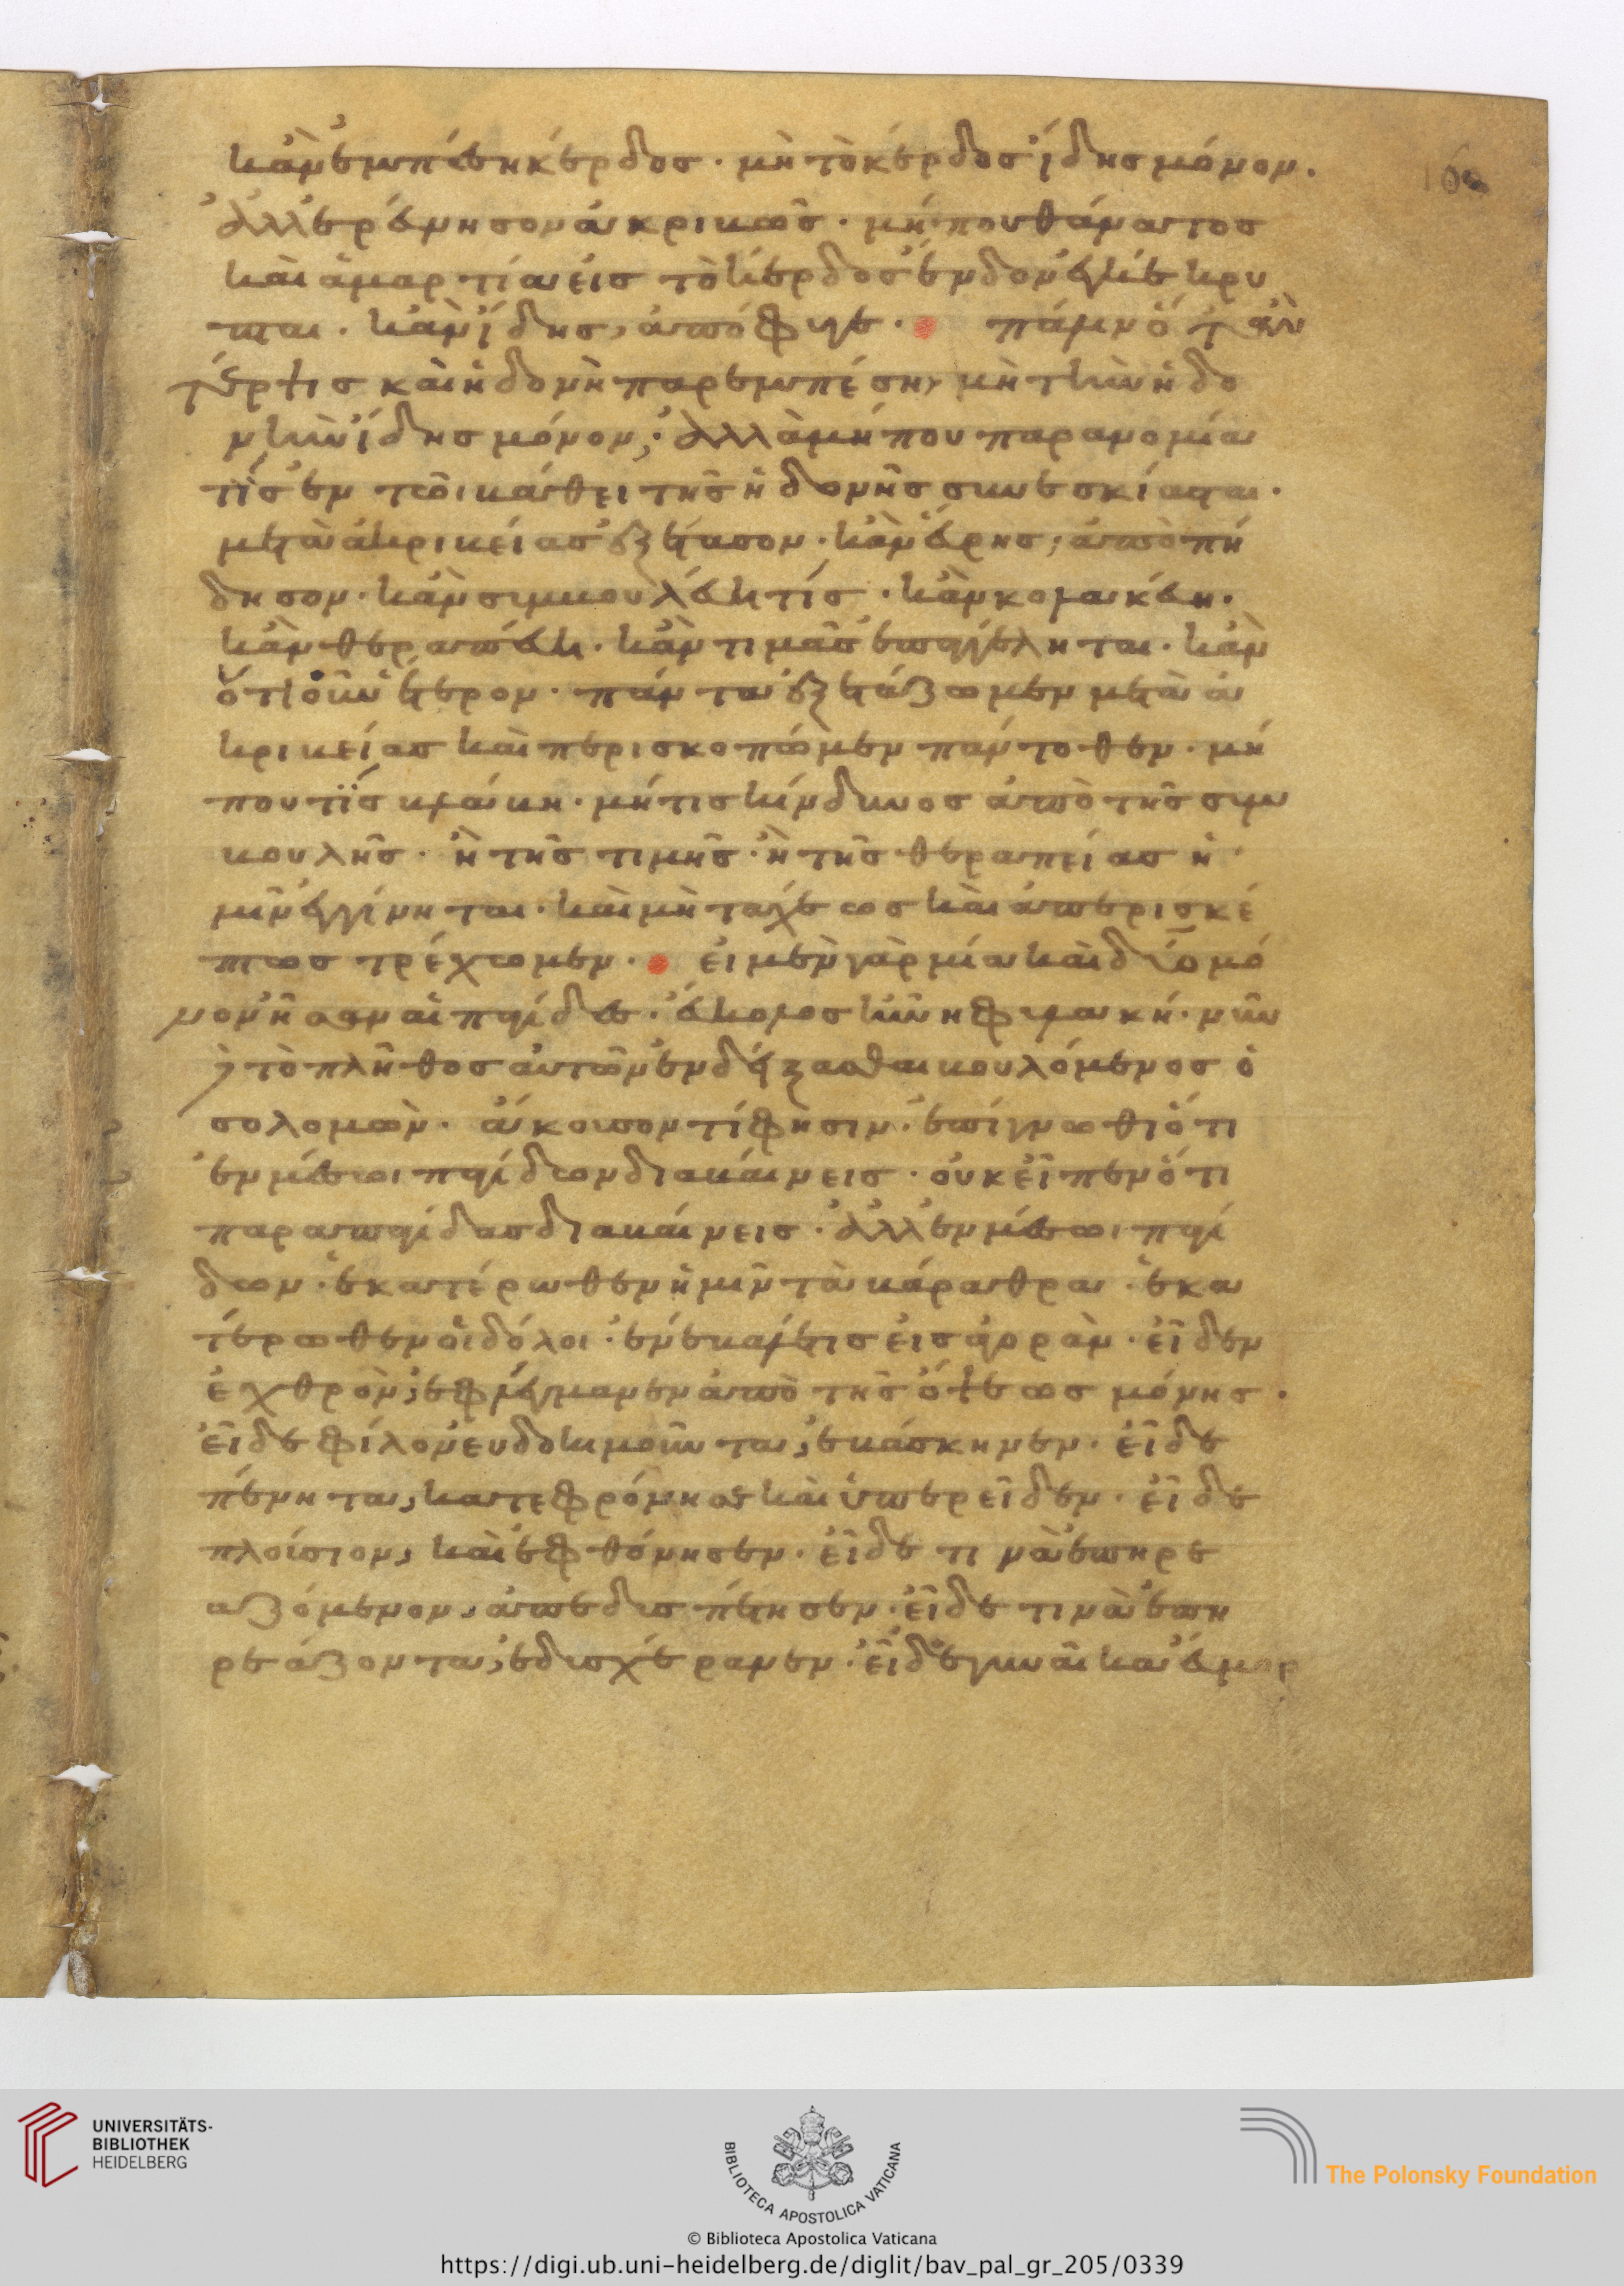 κἂν ἐμπέση κέρδος · μὴ τὸ κέρδος ἴδης μόνον ·
ἀλλ' ἐρεύνησον ἀκριβῶς · μή που θάνατος
καὶ ἁμαρτία εἰς τὸ κέρδος ἔνδον ἐγκέκρυ
πται · κἂν ἴδης, ἀπόφυγε · πάλιν ὅταν
τέρψις καὶ ἡδονὴ παρεμπέση, μὴ τὴν ἡδο
νὴν ἴδης μόνον, ἀλλὰ μή που παρανομία
τίς ἐν τῶι βάθει τῆς ἡδονῆς συνεσκίασται ·
μετὰ ἀκριβείας ἐξέτασον · κἂν εὕρης, ἀποπή
δησον · κἂν συμβουλεύη τίς · κἂν κολακεύη ·
κἂν θεραπεύη · κἂν τιμὰς ἐπαγγέληται · κἂν
ὁτιοῦν ἕτερον · πάντα ἐξετάζωμεν μετὰ ἀ
κριβείας καὶ περισκοπῶμεν πάντοθεν · μή
που τίς βλάβη · μή τις κίνδυνος ἀπὸ τῆς συμ
βουλῆς · ἢ τῆς τιμῆς · ἢ τῆς θεραπείας ἡ
μῖν ἐγγίνηται · καὶ μὴ ταχέως καὶ ἀπερισκέ
πτως τρέχωμεν · εἰ μὲν γὰρ μία καὶ δύο μό
νον ἦσαν αἱ παγίδες · εὔκολος ἦν ἡ φυλακή · νῦν
τὸ πλῆθος αὐτῶν ἐνδείξασθαι βουλόμενος ὁ
σολομὼν · ἄκουσον τί φησιν · ἐπίγνωθι ὅτι
ἐν μέσωι παγίδων διαβαίνεις · οὐκ εἶπεν ὅτι
παρὰ παγίδας διαβαίνεις · ἀλλ' ἐν μέσωι παγί
δων · ἑκατέρωθεν ἡμῖν τὰ βάραθρα · ἑκα
τέρωθεν οἱ δόλοι · ἐνέβαλέ τις εἰς ἀγορὰν · εἶδεν
ἐχθρὸν, ἐφλέγμανεν ἀπὸ τῆς ὄψεως μόνης ·
εἶδε φίλον εὐδοκιμοῦντα, ἐβάσκηνεν · εἶδε
πένητα, κατεφρόνησε καὶ ὑπερεῖδεν · εἶδε
πλούσιον, καὶ ἐφθόνησεν · εἶδέ τινα ἐπηρε
αζόμενον, ἀπεδυσπέτησεν · εἶδέ τινα ἐπη
ρεάζοντα, ἐδυσχέρανεν · εἶδε γυναῖκα εὔμορ
UNIVERSITÄTS-
BIBLIOTHEK
HEIDELBERG
BIBLIOTECA APOSTOLICA VATICANA
The Polonsky Foundation
© Biblioteca Apostolica Vaticana
https://digi.ub.uni-heidelberg.de/diglit/bav_pal_gr_205/0339